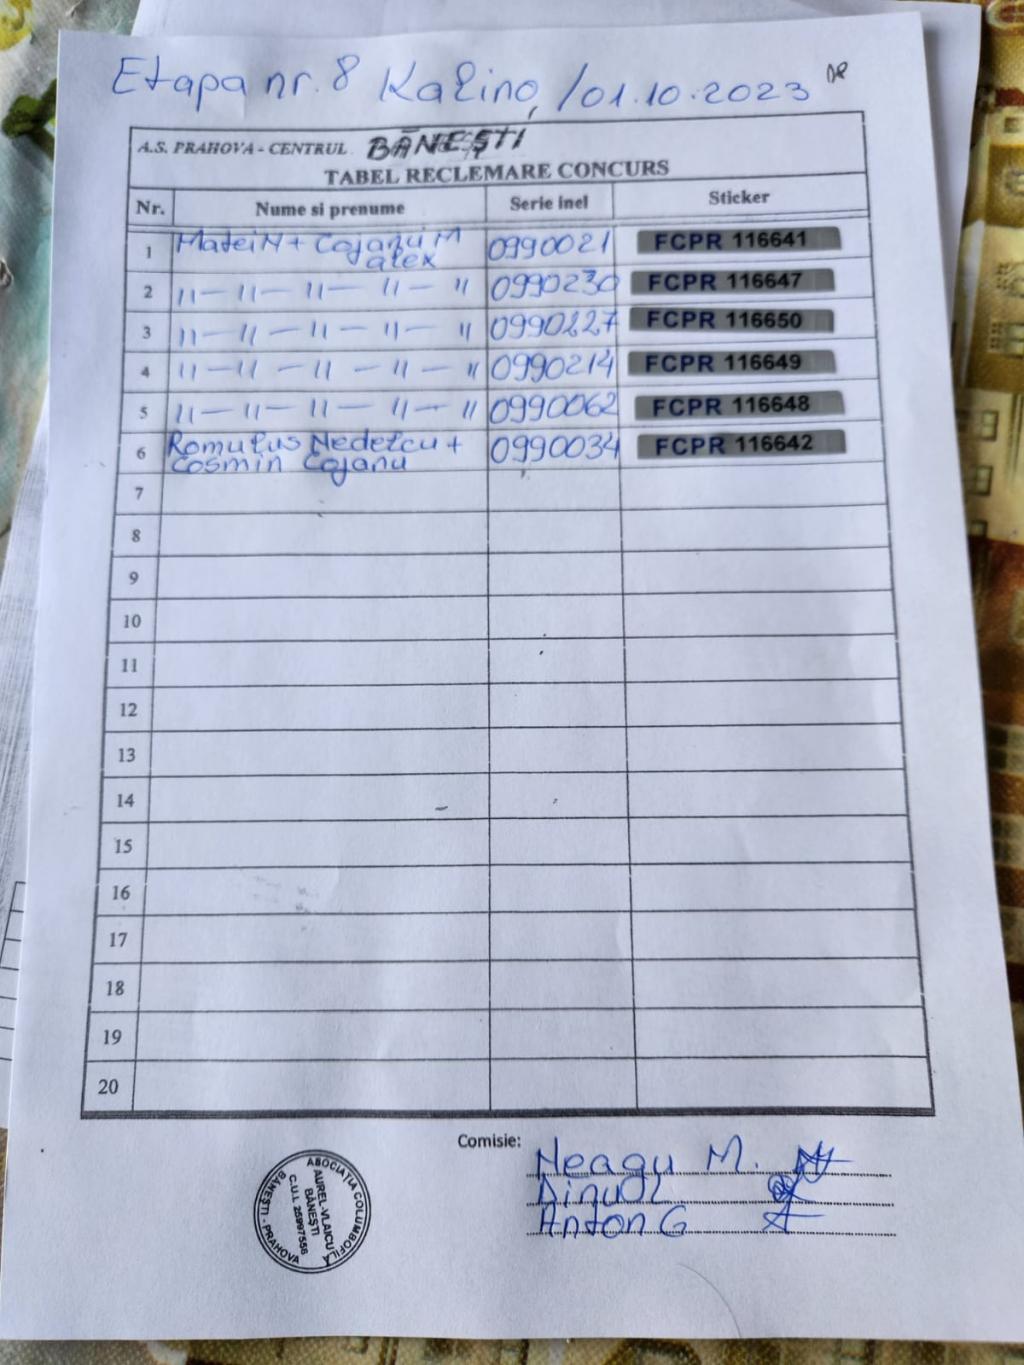 Etapa nr. 8 Kalino, /01.10.2023
A.S. PRAHOVA - CENTRUL BĂNEȘTI
TABEL RECLEMARE CONCURS
Nr. Nume si prenume Serie inel Sticker
1 Matei N + Cojanu M alex 0990021 FCPR 116641
2 11 — 11 — 11 — 11 — 11 0990230 FCPR 116647
3 11 — 11 — 11 — 11 — 11 0990227 FCPR 116650
4 11 — 11 — 11 — 11 — 11 0990214 FCPR 116649
5 11 — 11 — 11 — 11 — 11 0990062 FCPR 116648
6 Romulus Nedelcu + Cosmin Cojanu 0990034 FCPR 116642
7
8
9
10
11
12
13
14
15
16
17
18
19
20
Comisie:
Neagu M.
Dinu L
Anton G
ASOCIAȚIA COLUMBOFILĂ
AUREL-VLAICU
BĂNEȘTI
C.U.I. 25997556
BĂNEȘTI - PRAHOVA